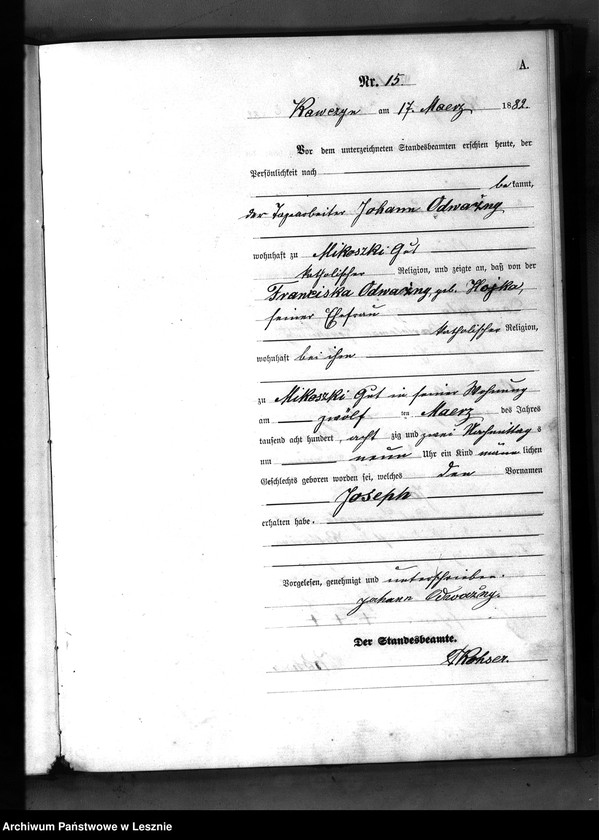 A.
Nr. 15.
Kawczyn am 17. Maerz 1882.
Vor dem unterzeichneten Standesbeamten erschien heute, der
Persönlichkeit nach
bekannt,
der Tagearbeiter Johann Odważny
wohnhaft zu Mikoszki Gut
katholischer Religion, und zeigte an, daß von der
Franciska Odważny, geb. Hojka,
seiner Ehefrau
katholischer Religion,
wohnhaft bei ihm
zu Mikoszki Gut in seiner Wohnung
am zwölf ten Maerz des Jahres
tausend acht hundert acht zig und zwei Nachmittag s
um neun Uhr ein Kind männlichen
Geschlechts geboren worden sei, welches den Vornamen
Joseph
erhalten habe.
Vorgelesen, genehmigt und unterschrieben.
Johann Odważny.
Der Standesbeamte.
Archiwum Państwowe w Lesznie